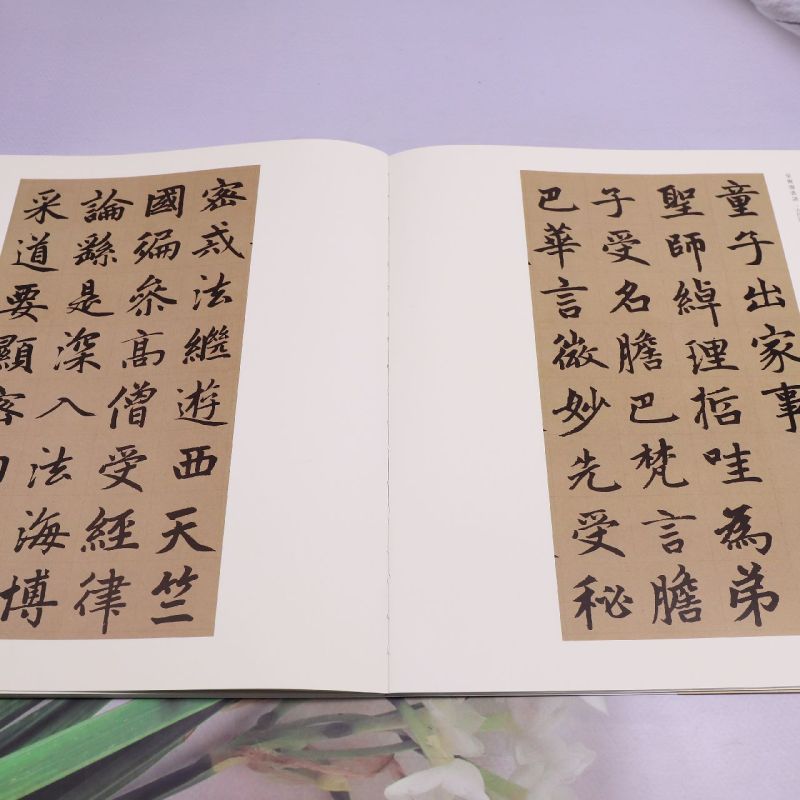 童子出家事
聖師綽理哲哇為弟
子受名膽巴梵言膽
巴華言微妙先受秘
密戒法繼遊西天竺
國徧參高僧受經律
論繇是深入法海博
采道要顯密